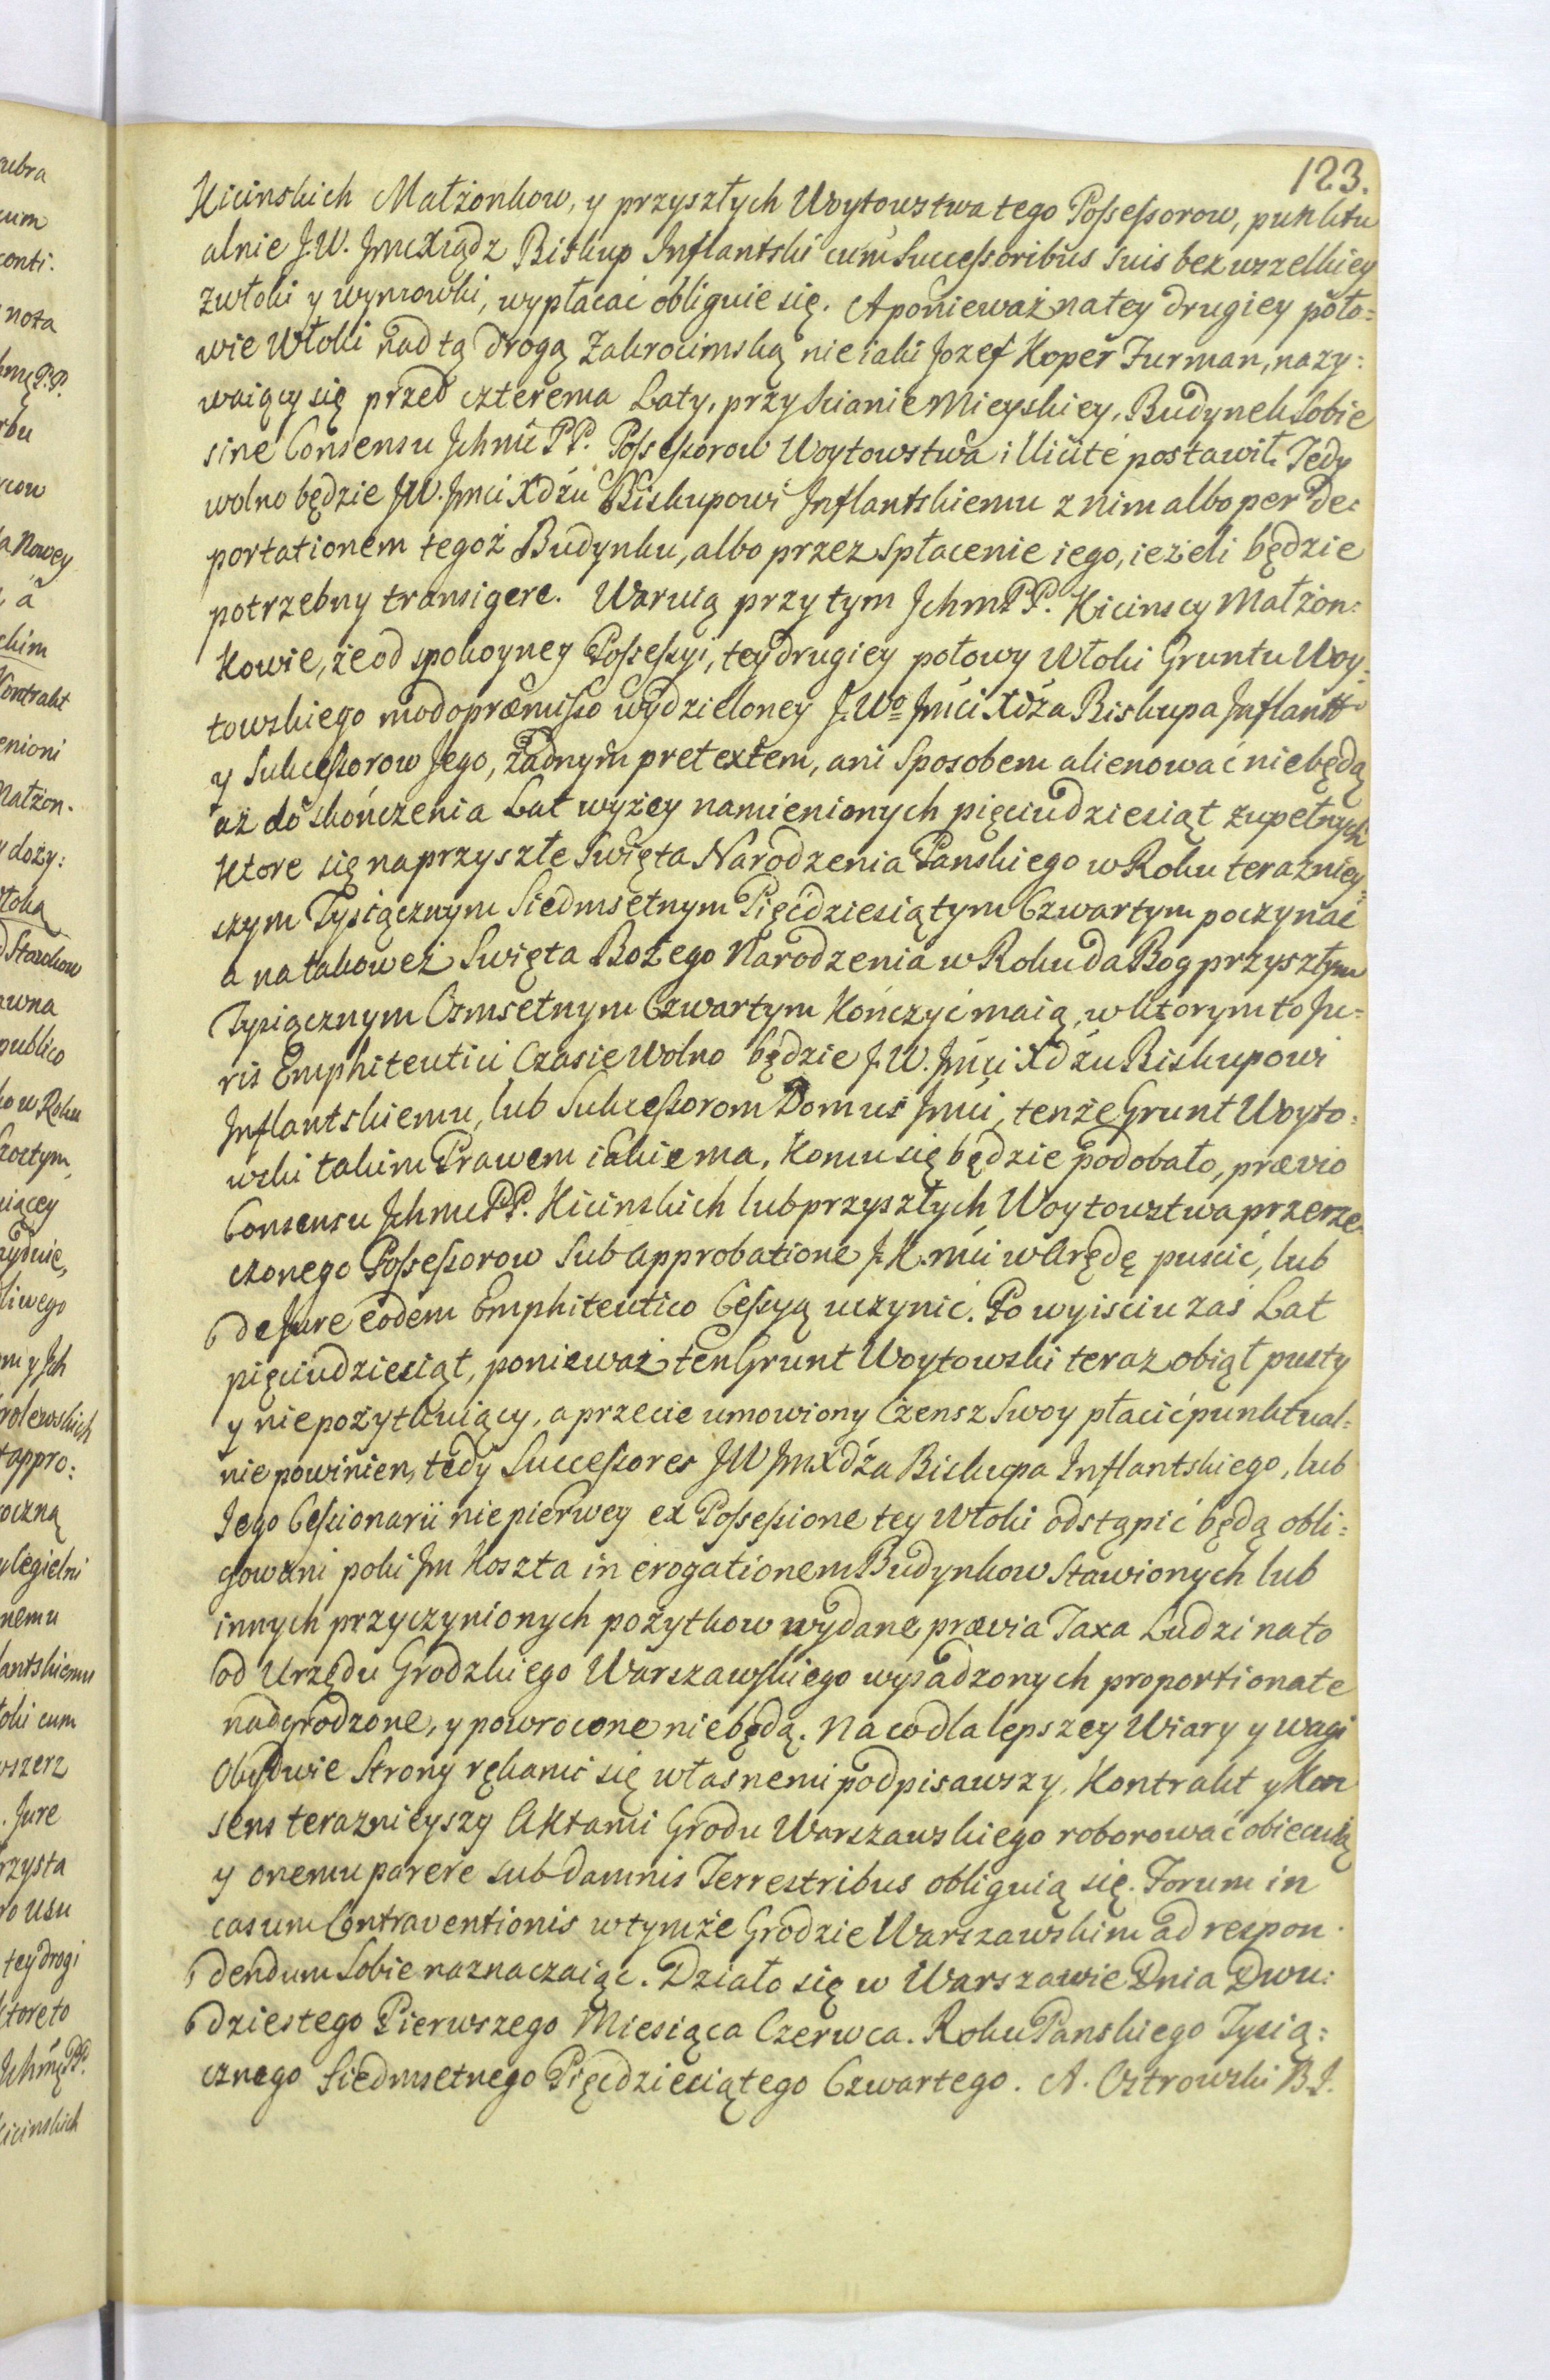 123.
Kicinskich Małżonkow, y przyszłych Woytowstwa tego Possessorow, punktu
alnie J.W. JmcXiądz Biskup Inflantski cum Successoribus suis bez wszelkiey
zwłoki y wymowki, wypłacać obliguie się. A ponieważ na tey drugiey poło=
wie Włoki nad tą drogą Zakrocimską nieiaki Jozef Koper Furman, nazy:
waiący się przed czterema Laty, przy Scianie Mieyskiey, Budynek Sobie
sine Consensu Jchmć PP. Possessorow Woytowstwa illicite postawił. Tedy
wolno będzie JW. Jmci Xdzu Biskupowi Inflantskiemu z nim albo per de:
portationem tegoż Budynku, albo przez Spłacenie iego, ieżeli będzie
potrzebny transigere. Waruią przy tym Jchm PP. Kicinscy Małżon:
kowie, że od spokoyney Possessyi, tey drugiey połowy Włoki Gruntu Woy:
towskiego modo præmisso wydzieloney J.Wo Jmci Xdza Biskupa Inflantt
y Sukcessorow Jego, żadnym pretextem, ani Sposobem alienować niebędą
aż do skończenia Lat wyżey namienionych pięciudziesiąt zupełnych
Ktore się na przyszłe Swięta Narodzenia Panskiego w Roku teraźniey:
szym Tysiącznym Siedmsetnym Pięćdziesiątym Czwartym poczynać
a na takoweż Swięta Bożego Narodzenia w Roku da Bog przyszłym
Tysiącznym Osmsetnym Czwartym Kończyć maią, w ktorym to Ju=
ris Emphiteutici Czasie Wolno będzie J.W. Jmci Xdzu Biskupowi
Inflantskiemu, lub Sukcessorom Domus Jmci, tenże Grunt Woyto:
wski takim Prawem iakie ma, Komu się będzie podobało, prævio
Consensu Jchmc PP. Kicinskich lub przyszłych Woytowstwa przerze
czonego Possessorow Sub approbatione J.K.mci w Arędę puscić, lub
de Jure eodem Emphiteutico Cessyą uczynić. Po wyisciu zaś Lat
pięciudziesiąt, ponieważ ten Grunt Woytowski teraz obiął pusty
y niepożytkuiący, a przecie umowiony Czensz Swoy płacić punktual=
nie powinien, tedy Successores JW JmXdza Biskupa Inflantskiego, lub
Jego Cessionarii nie pierwey ex Possessione tey Włoki odstąpić będą obli=
gowani poki Jm Koszta in erogationem Budynkow Stawionych lub
innych przyczynionych pożytkow wydane, prævia Taxa Ludzi na to
od Urzędu Grodzkiego Warszawskiego wysadzonych proportionate
nadgrodzone, y powrocone niebędą. Na co dla lepszey Wiary y wagi
Obydwie Strony rękami się własnemi podpisawszy, Kontrakt y Kon
sens terazniejszy Aktami Grodu Warszawskiego roborować obiecuią
y onemu parere sub damnis Terrestribus obliguią się. Forum in
casum Contraventionis w tymże Grodzie Warszawskim ad respon
dendum Sobie naznaczaiąc. Działo się w Warszawie Dnia Dwu:
dziestego Pierwszego Miesiąca Czerwca. Roku Panskiego Tysią:
cznego Siedmsetnego Pięćdziesiątego Czwartego. A. Ostrowski B.I.